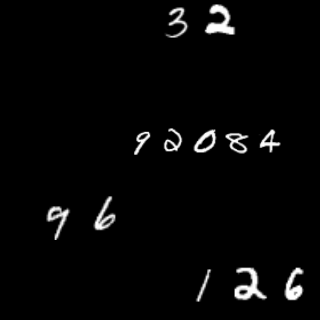 32
92084
96
126